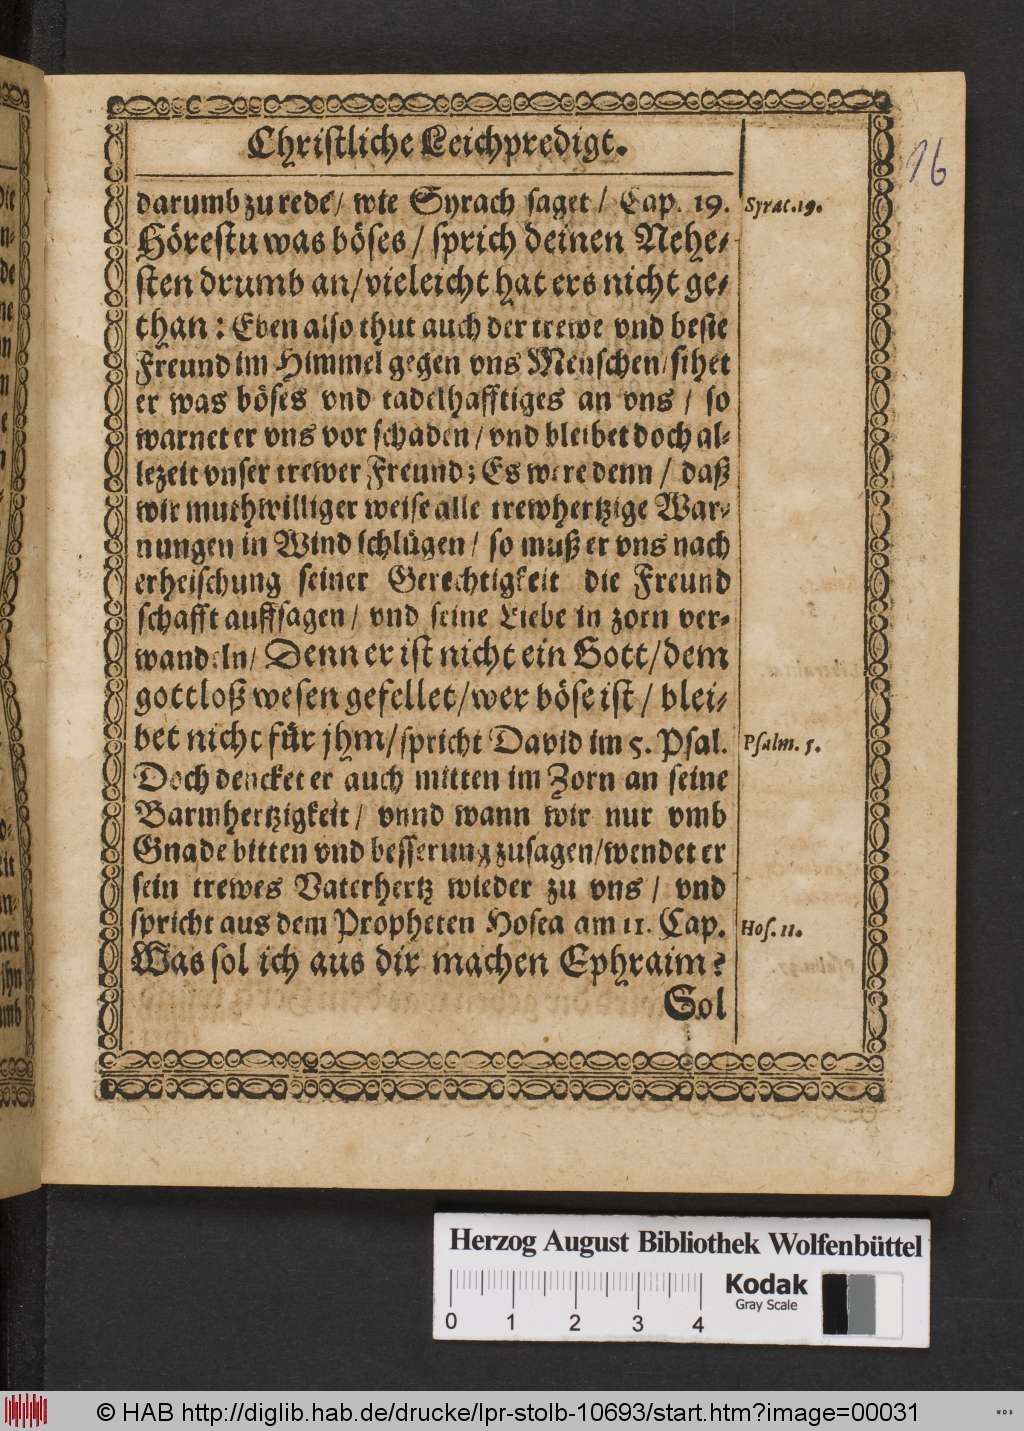 Christliche Leichpredigt.
16
darumb zu rede / wie Syrach saget / Cap. 19.
Syrac. 19.
Hörestu was böses / sprich deinen Nehe-
sten drumb an / vieleicht hat ers nicht ge-
than: Eben also thut auch der trewe vnd beste
Freund im Himmel gegen vns Menschen / sihet
er was böses vnd tadelhafftiges an vns / so
warnet er vns vor schaden / vnd bleibet doch al-
lezeit vnser trewer Freund; Es were denn / daß
wir muthwilliger weise alle trewhertzige War-
nungen in Wind schlügen / so muß er vns nach
erheischung seiner Gerechtigkeit die Freund
schafft auffsagen / vnd seine Liebe in zorn ver-
wandeln / Denn er ist nicht ein Gott / dem
gottloß wesen gefellet / wer böse ist / blei-
bet nicht für jhm / spricht David im 5. Psal.
Psalm. 5.
Doch dencket er auch mitten im Zorn an seine
Barmhertzigkeit / vnnd wann wir nur vmb
Gnade bitten vnd besserung zusagen / wendet er
sein trewes Vaterhertz wieder zu vns / vnd
spricht aus dem Propheten Hosea am 11. Cap.
Hos. 11.
Was sol ich aus dir machen Ephraim?
Sol
Herzog August Bibliothek Wolfenbüttel
0 1 2 3 4
Kodak
Gray Scale
© HAB http://diglib.hab.de/drucke/lpr-stolb-10693/start.htm?image=00031